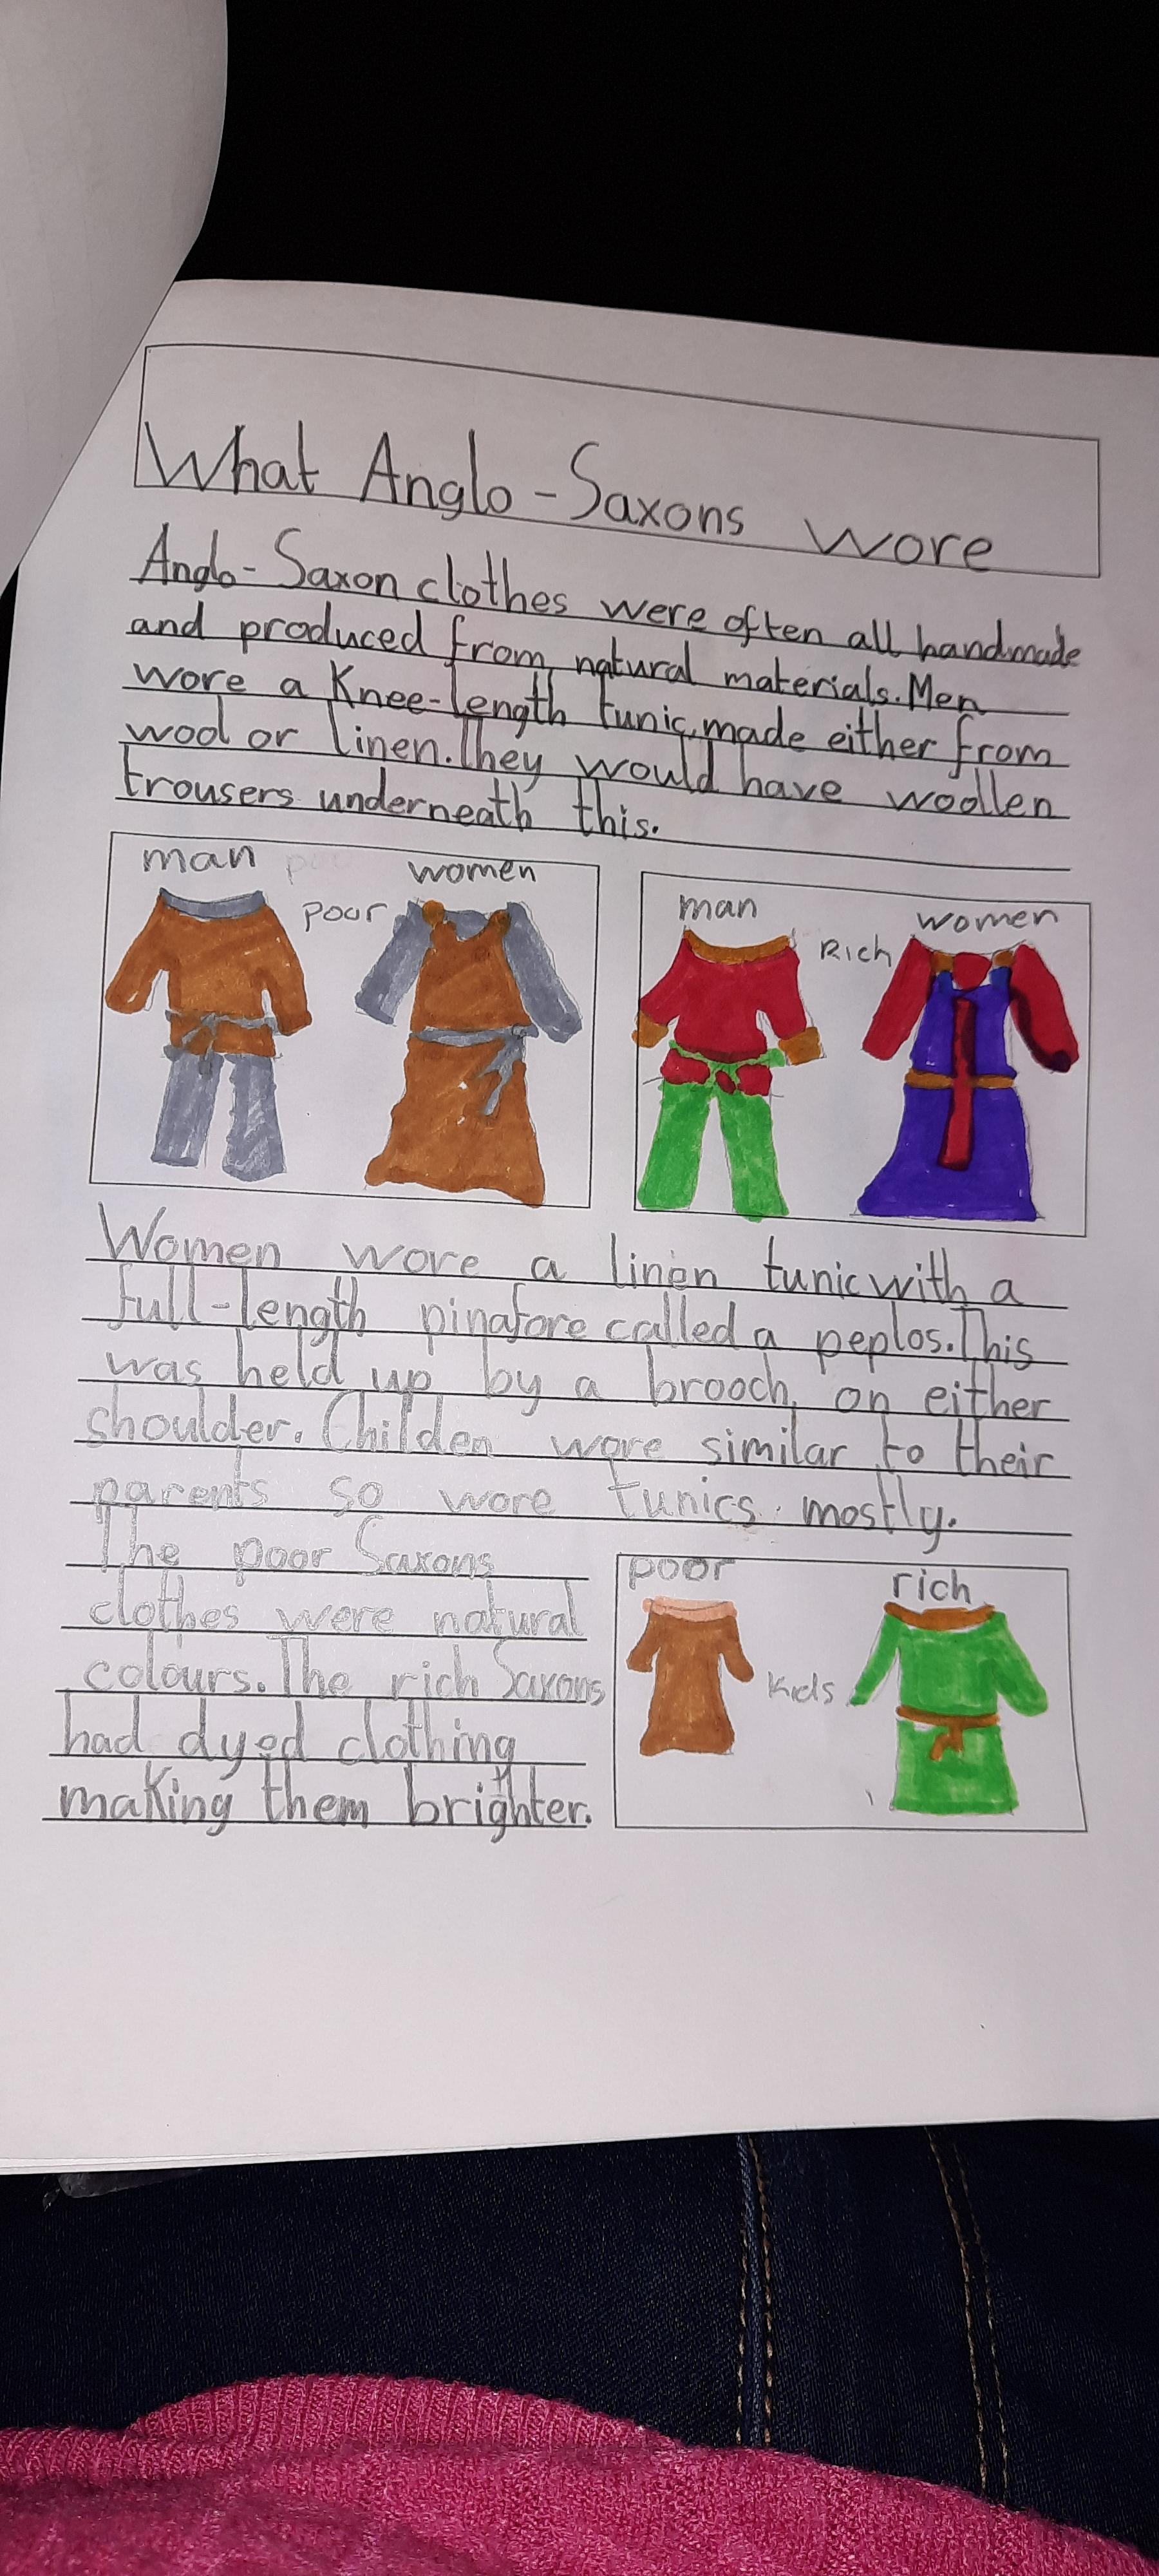 What Anglo-Saxons wore
Anglo-Saxon clothes were often all handmade
and produced from natural materials. Men
wore a Knee-length tunic, made either from
wool or linen. They would have woollen
trousers underneath this.
man
women
poor
man
women
Rich
Women wore a linen tunic with a
full-length pinafore called a peplos. This
was held up by a brooch on either
shoulder. Childen wore similar to their
parents so wore tunics mostly.
The poor Saxons
clothes were natural
colours. The rich Saxons
had dyed clothing
making them brighter.
poor
rich
Kids